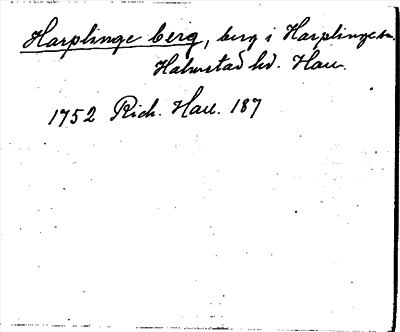 Harplinge berg, berg i Harplinge sn.
Halmstad hd. Hall.
1752 Rich. Hall. 187